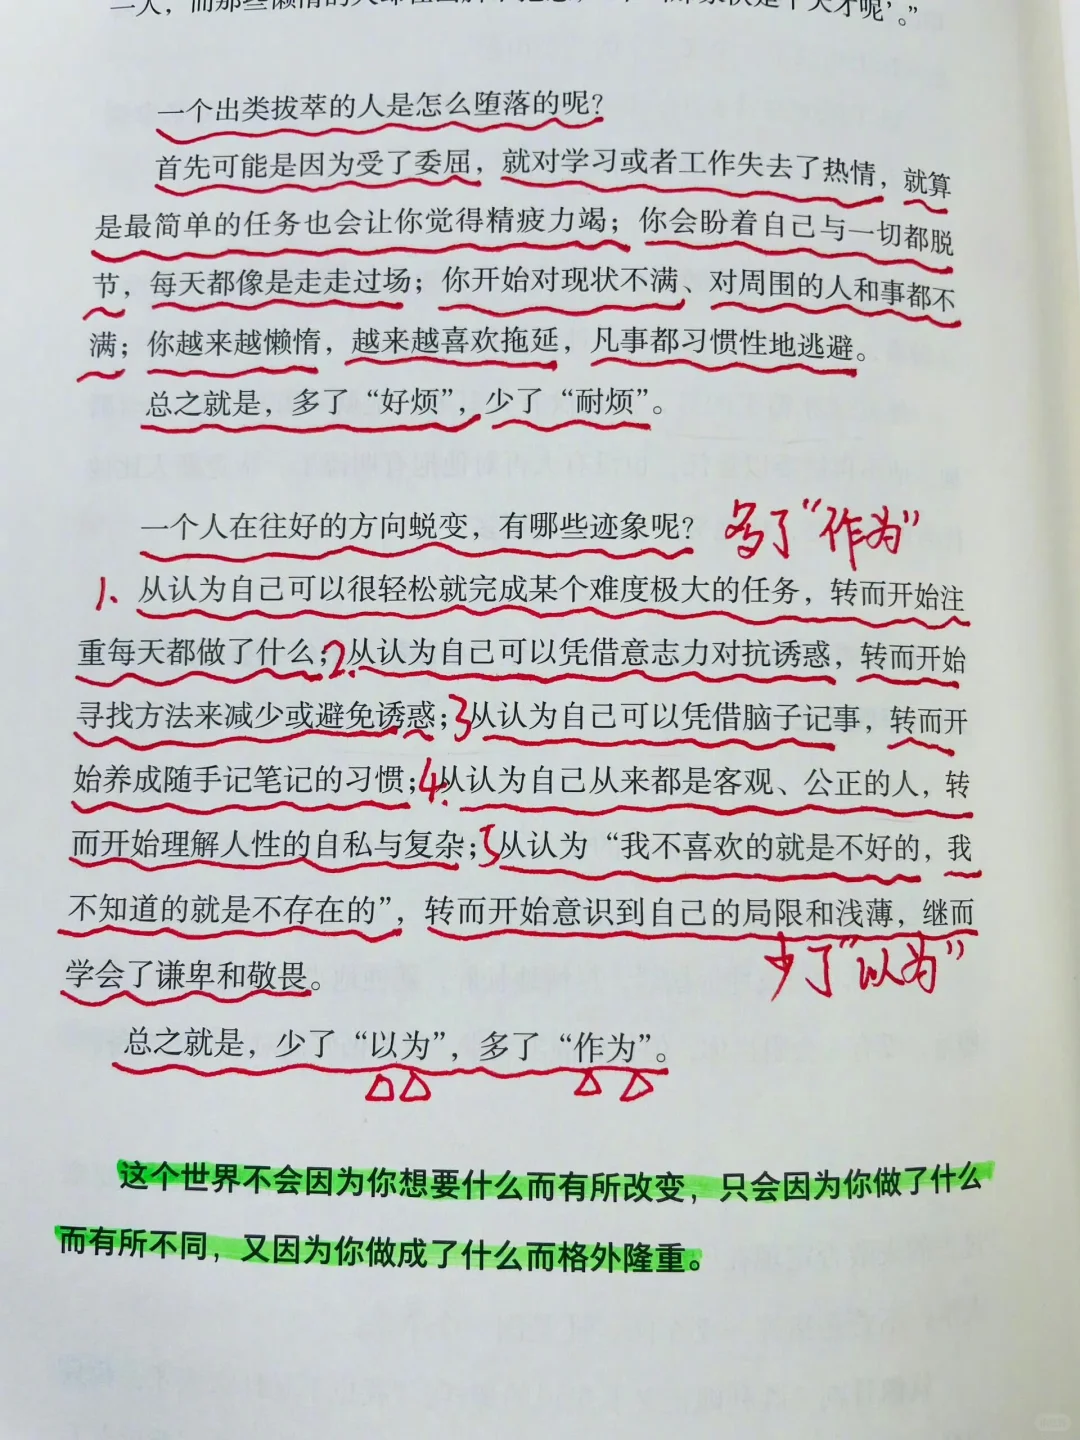 一个出类拔萃的人是怎么堕落的呢？
首先可能是因为受了委屈，就对学习或者工作失去了热情，就算
是最简单的任务也会让你觉得精疲力竭；你会盼着自己与一切都脱
节，每天都像是走走过场；你开始对现状不满、对周围的人和事都不
满；你越来越懒惰，越来越喜欢拖延，凡事都习惯性地逃避。
总之就是，多了“好烦”，少了“耐烦”。
一个人在往好的方向蜕变，有哪些迹象呢？ 多了“作为”
1、从认为自己可以很轻松就完成某个难度极大的任务，转而开始注
重每天都做了什么；2.从认为自己可以凭借意志力对抗诱惑，转而开始
寻找方法来减少或避免诱惑；3从认为自己可以凭借脑子记事，转而开
始养成随手记笔记的习惯；4.从认为自己从来都是客观、公正的人，转
而开始理解人性的自私与复杂；5从认为“我不喜欢的就是不好的，我
不知道的就是不存在的”，转而开始意识到自己的局限和浅薄，继而
学会了谦卑和敬畏。 少了“以为”
总之就是，少了“以为”，多了“作为”。
这个世界不会因为你想要什么而有所改变，只会因为你做了什么
而有所不同，又因为你做成了什么而格外隆重。